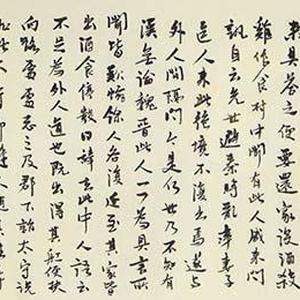 來具答之便要還家設酒殺
雞作食村中聞有此人咸來問
訊自云先世避秦時亂率妻子
邑人來此絕境不復出焉遂与
外人間隔問今是何世乃不知有
漢無論魏晉此人一一為具言所
聞皆歎惋餘人各復延至其家皆
出酒食停數日辭去此中人語云
不足為外人道也既出得其舩便扶
向路處處志之及郡下詣太守說